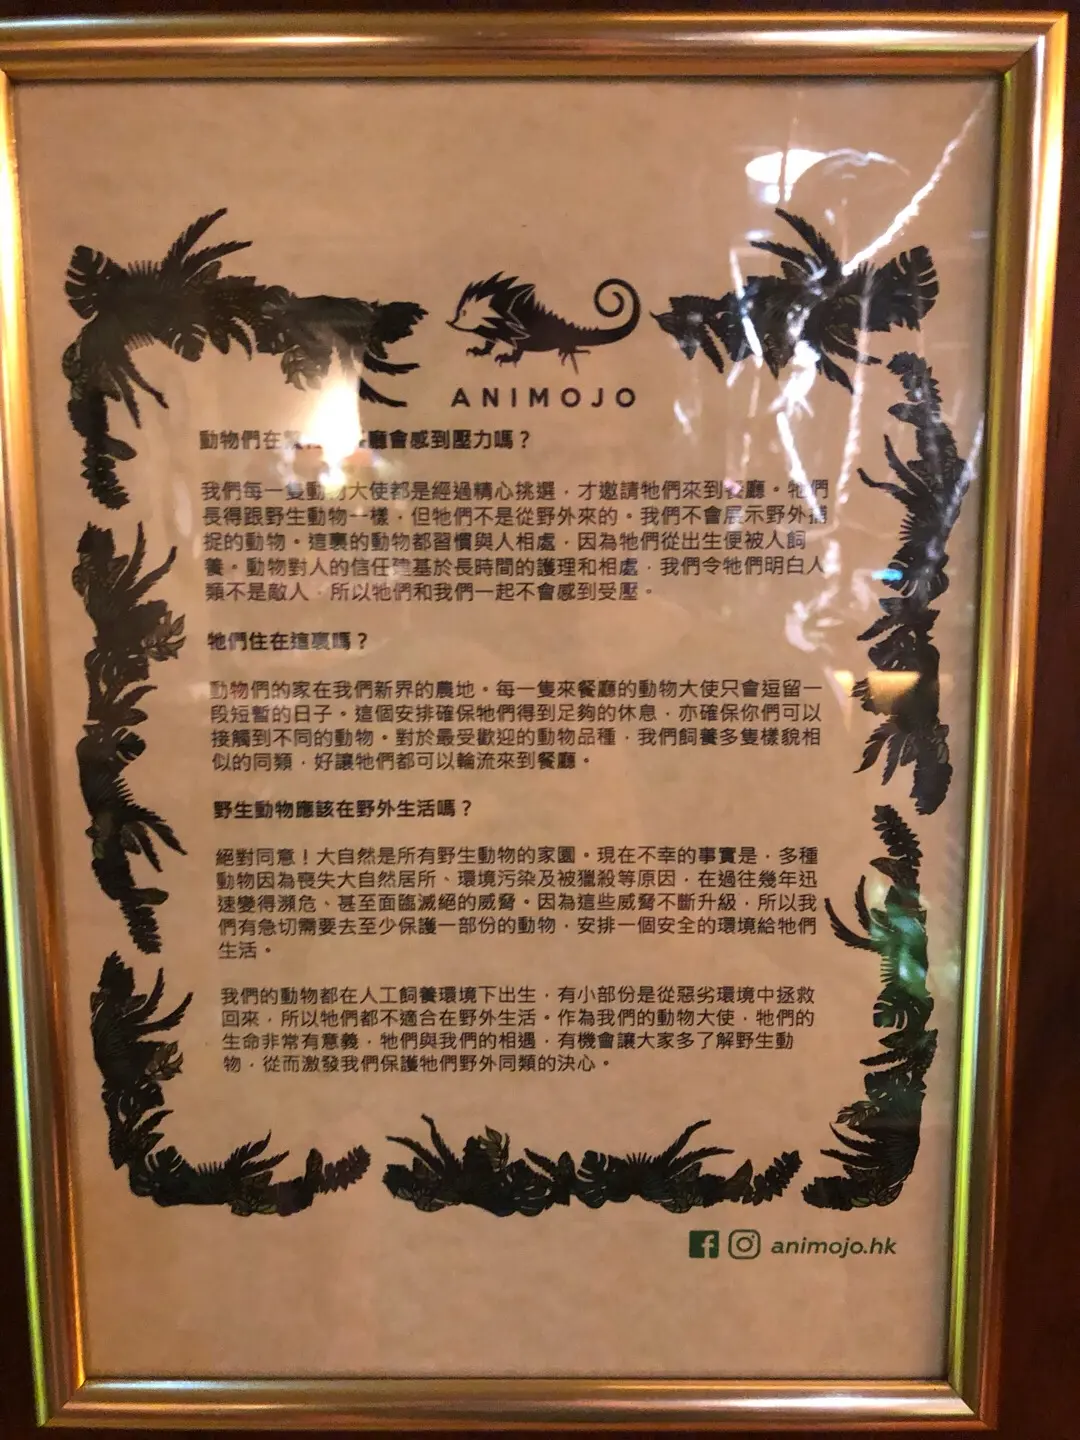 ANIMOJO
動物們在餐廳會感到壓力嗎？
我們每一隻動物大使都是經過精心挑選，才邀請牠們來到餐廳。牠們
長得跟野生動物一樣，但牠們不是從野外來的。我們不會展示野外捕
捉的動物。這裏的動物都習慣與人相處，因為牠們從出生便被人飼
養。動物對人的信任建基於長時間的護理和相處，我們令牠們明白人
類不是敵人，所以牠們和我們一起不會感到受壓。
牠們住在這裏嗎？
動物們的家在我們新界的農地。每一隻來餐廳的動物大使只會逗留一
段短暫的日子。這個安排確保牠們得到足夠的休息，亦確保你們可以
接觸到不同的動物。對於最受歡迎的動物品種，我們飼養多隻樣貌相
似的同類，好讓牠們都可以輪流來到餐廳。
野生動物應該在野外生活嗎？
絕對同意！大自然是所有野生動物的家園。現在不幸的事實是，多種
動物因為喪失大自然居所、環境污染及被獵殺等原因，在過往幾年迅
速變得瀕危、甚至面臨滅絕的威脅。因為這些威脅不斷升級，所以我
們有急切需要去至少保護一部份的動物，安排一個安全的環境給牠們
生活。
我們的動物都在人工飼養環境下出生，有小部份是從惡劣環境中拯救
回來，所以牠們都不適合在野外生活。作為我們的動物大使，牠們的
生命非常有意義，牠們與我們的相遇，有機會讓大家多了解野生動
物，從而激發我們保護牠們野外同類的決心。
animojo.hk